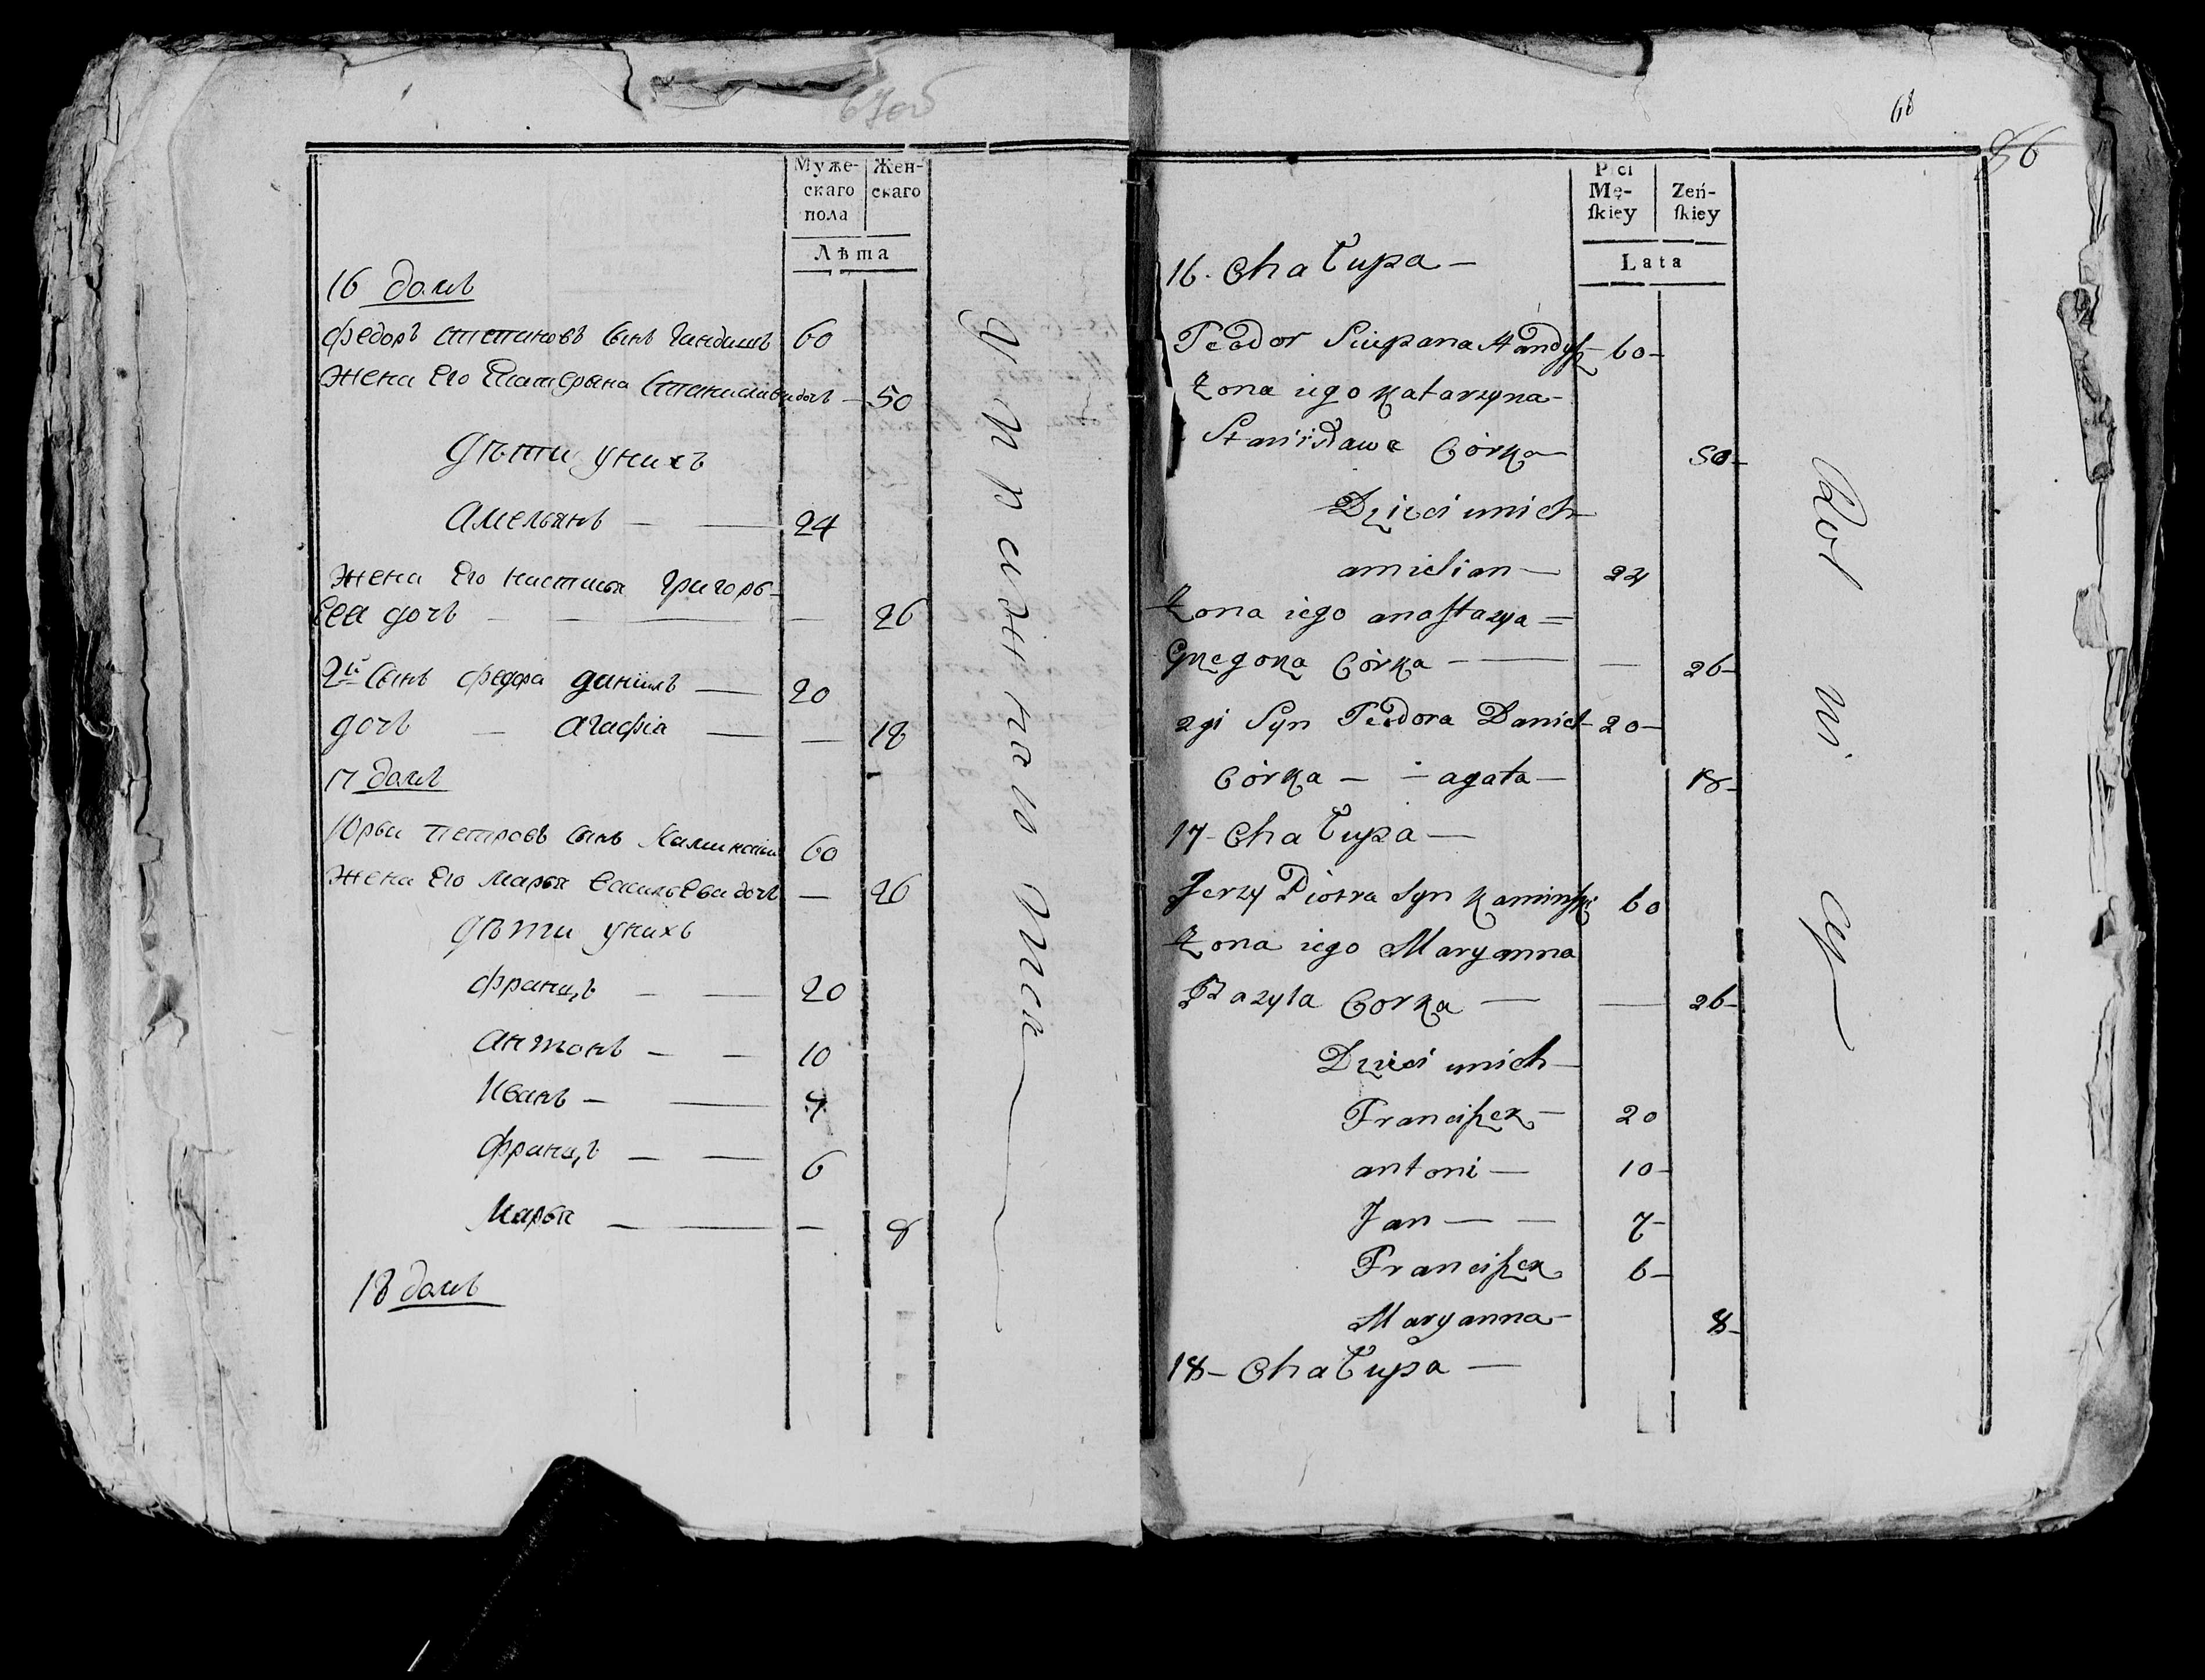 67об
Муже-
скаго
пола
Жен-
скаго
Лѣта
16 домъ
Федоръ Степановъ сынъ Гандышъ 60
Жена Его Екатерына Станиславова дочъ — 50
Дѣти унихъ
Амельянъ — — 24
Жена Его Настасья Григорь-
Ева дочъ — — — — 26
2й Сынъ Федора Данiилъ — 20
дочъ — Агафiа — — 18
17 домъ
Юрьи Петровъ сынъ Каминский 60
Жена Его Марья ВасильЕва дочъ — 26
Дѣти унихъ
Францъ — — 20
Антонъ — — 10
Иванъ — — 7
Францъ — — 6
Марья — — — 8
18 домъ
68
86
Płci
Mę-
skiey
Zeń-
skiey
Lata
16. Chałupa —
Teodor Sciepana Handysz — 60 —
Żona iego Katarzyna —
Stanisława Córka — 50 —
Dzieci unich —
amielian — 24
Żona iego anastazya =
Grzegorza Córka — — — 26 —
2gi Syn Teodora Daniel — 20 —
Córka — — agata — 18 —
17 — Chałupa —
Jerzy Piotra Syn Kaminski 60
Żona iego Maryanna
Bazyla Corka — — 26 —
Dzieci unich —
Franciszek — 20
antoni — 10 —
Jan — — 7 —
Franciszek 6 —
Maryanna — 8 —
18 — Chałupa —